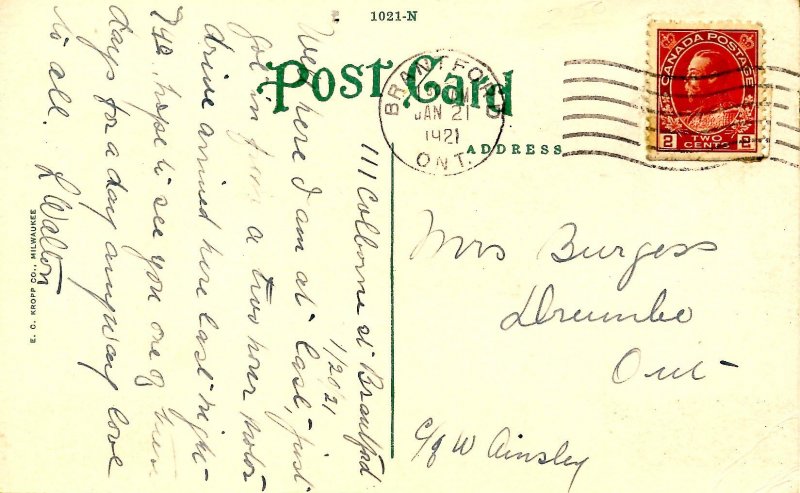 1021-N
Post Card
BRANTFORD
JAN 21
1921
ONT.
CANADA POSTAGE
2 TWO CENTS 2
ADDRESS
111 Colborne st Brantford
1/20/21
Well here I am at last, just
got in from a two hour motor
drive arrived here last night
hope to see you one of
days for a day anyway love
to all. L Walton
Mrs Burgess
Drumbo
Ont
C/o W Ainsley
E. C. KROPP CO., MILWAUKEE